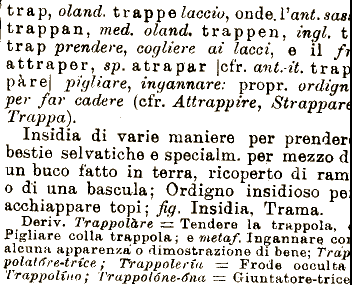 trap, oland. trappe laccio, onde l'ant. sass
trappan, med. oland. trappen, ingl. t
trap prendere, cogliere ai lacci, e il fr
attraper, sp. atrapar |cfr. ant.-it. trap
pàre| pigliare, ingannare: propr. ordign
per far cadere (cfr. Attrappire, Strappare
Trappa).
Insidia di varie maniere per prender
bestie selvatiche e specialm. per mezzo d
un buco fatto in terra, ricoperto di ram
o di una bascula; Ordigno insidioso pe
acchiappare topi; fig. Insidia, Trama.
Deriv. Trappolàre = Tendere la trappola,
Pigliare colla trappola; e metaf. Ingannare con
alcuna apparenza o dimostrazione di bene; Trap
polatóre-trice; Trappoleria = Frode occulta
Trappolíno; Trappolóne-óna = Giuntatore-trice